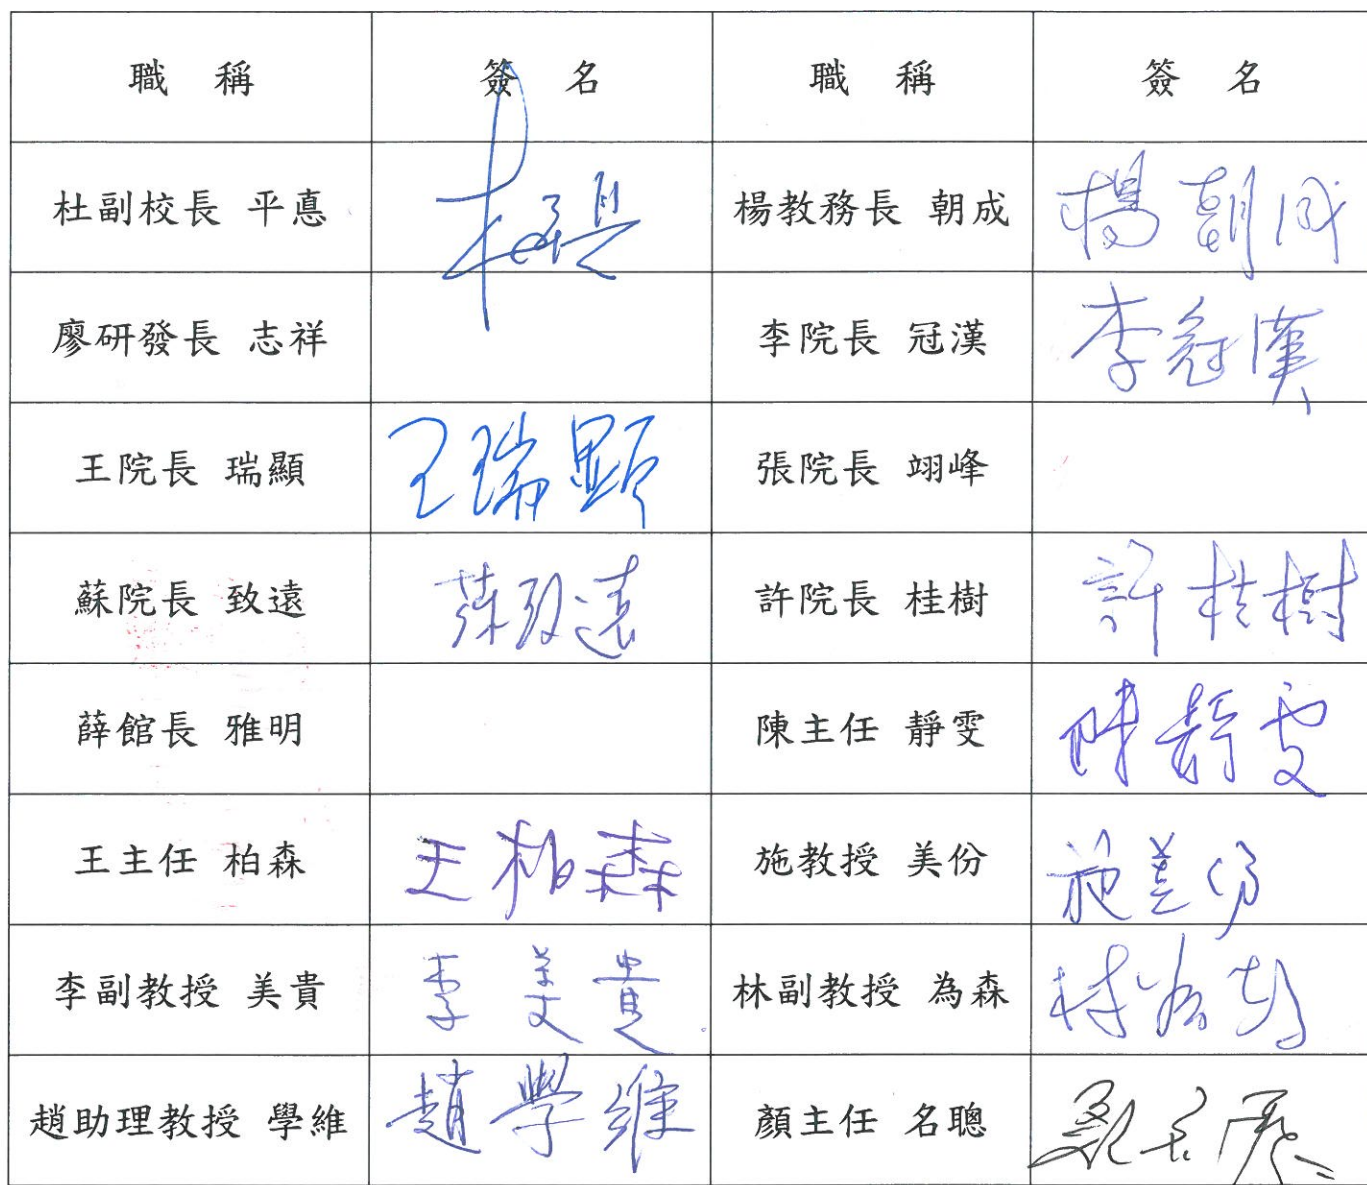 職 稱 簽 名 職 稱 簽 名
杜副校長 平悳 楊教務長 朝成 楊朝成
廖研發長 志祥 李院長 冠漢 李冠漢
王院長 瑞顯 王瑞顯 張院長 翊峰
蘇院長 致遠 蘇致遠 許院長 桂樹 許桂樹
薛館長 雅明 陳主任 靜雯 陳靜雯
王主任 柏森 王柏森 施教授 美份 施美份
李副教授 美貴 李美貴 林副教授 為森
趙助理教授 學維 趙學維 顏主任 名聰